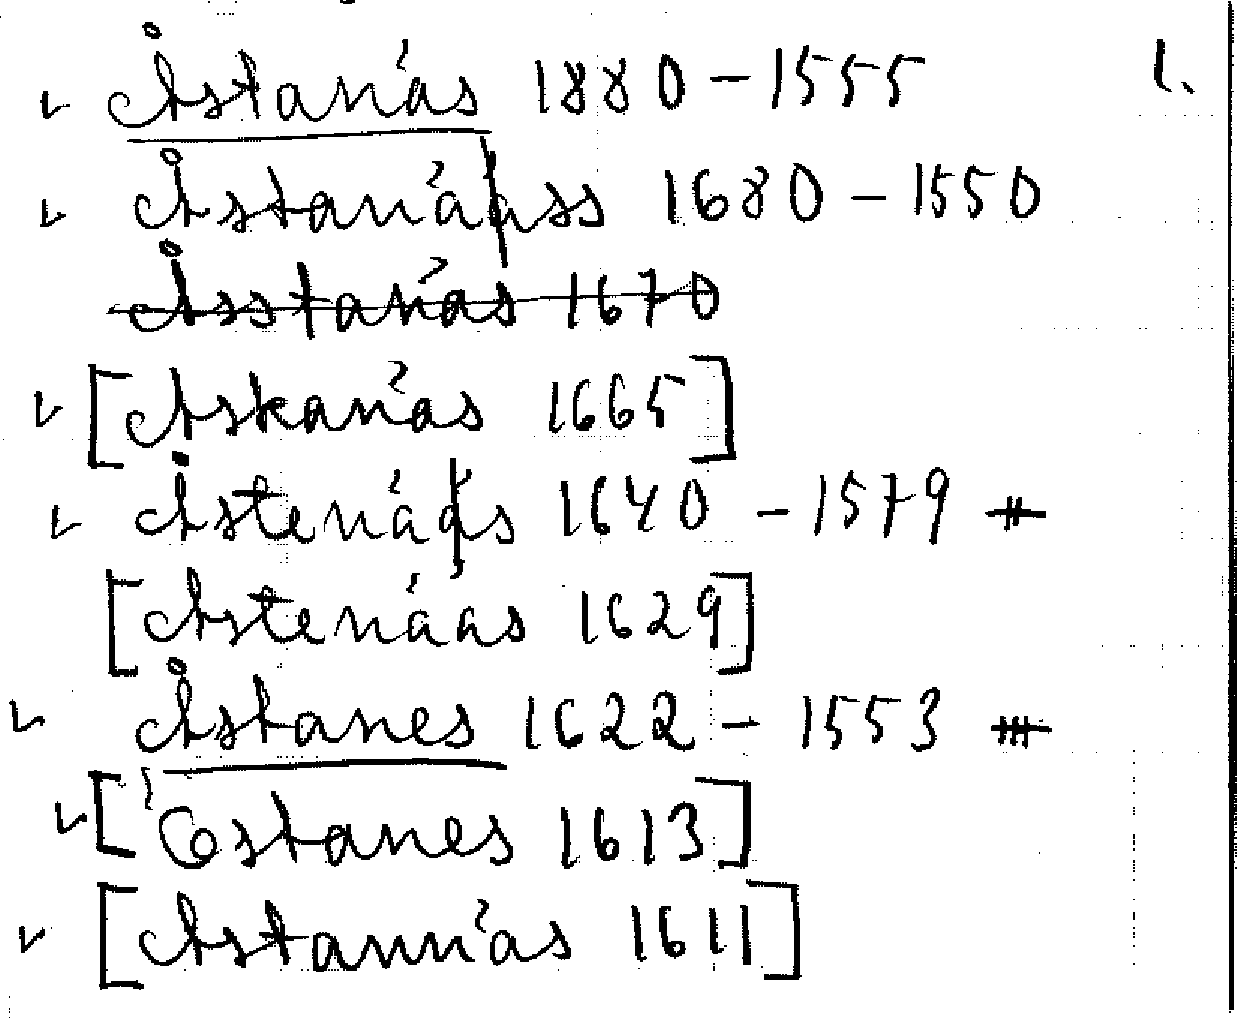 ✓ Åstanás 1880 – 1555 1.
✓ Åstanáass 1680 – 1550
Åsstanás 1670
✓ [Astanás 1665]
✓ Åstenáas 1640 – 1579 #
[Astenáas 1629]
✓ Åstanes 1622 – 1553 #
✓ [Ostanes 1613]
✓ [Astannás 1611]